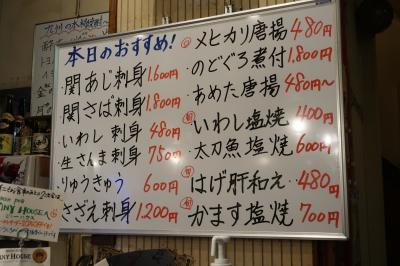 九州の本格焼酎
本日のおすすめ!
関あじ刺身 1.600円
関さば刺身 1.800円
いわし刺身 480円
生さんま刺身 750円
りゅうきゅう 600円
さざえ刺身 1.200円
メヒカリ唐揚 480円
のどぐろ煮付 1.800円
あめた唐揚 480円~
いわし塩焼 400円
太刀魚塩焼 600円
はげ肝和え 480円
かます塩焼 700円
NY HOUSE